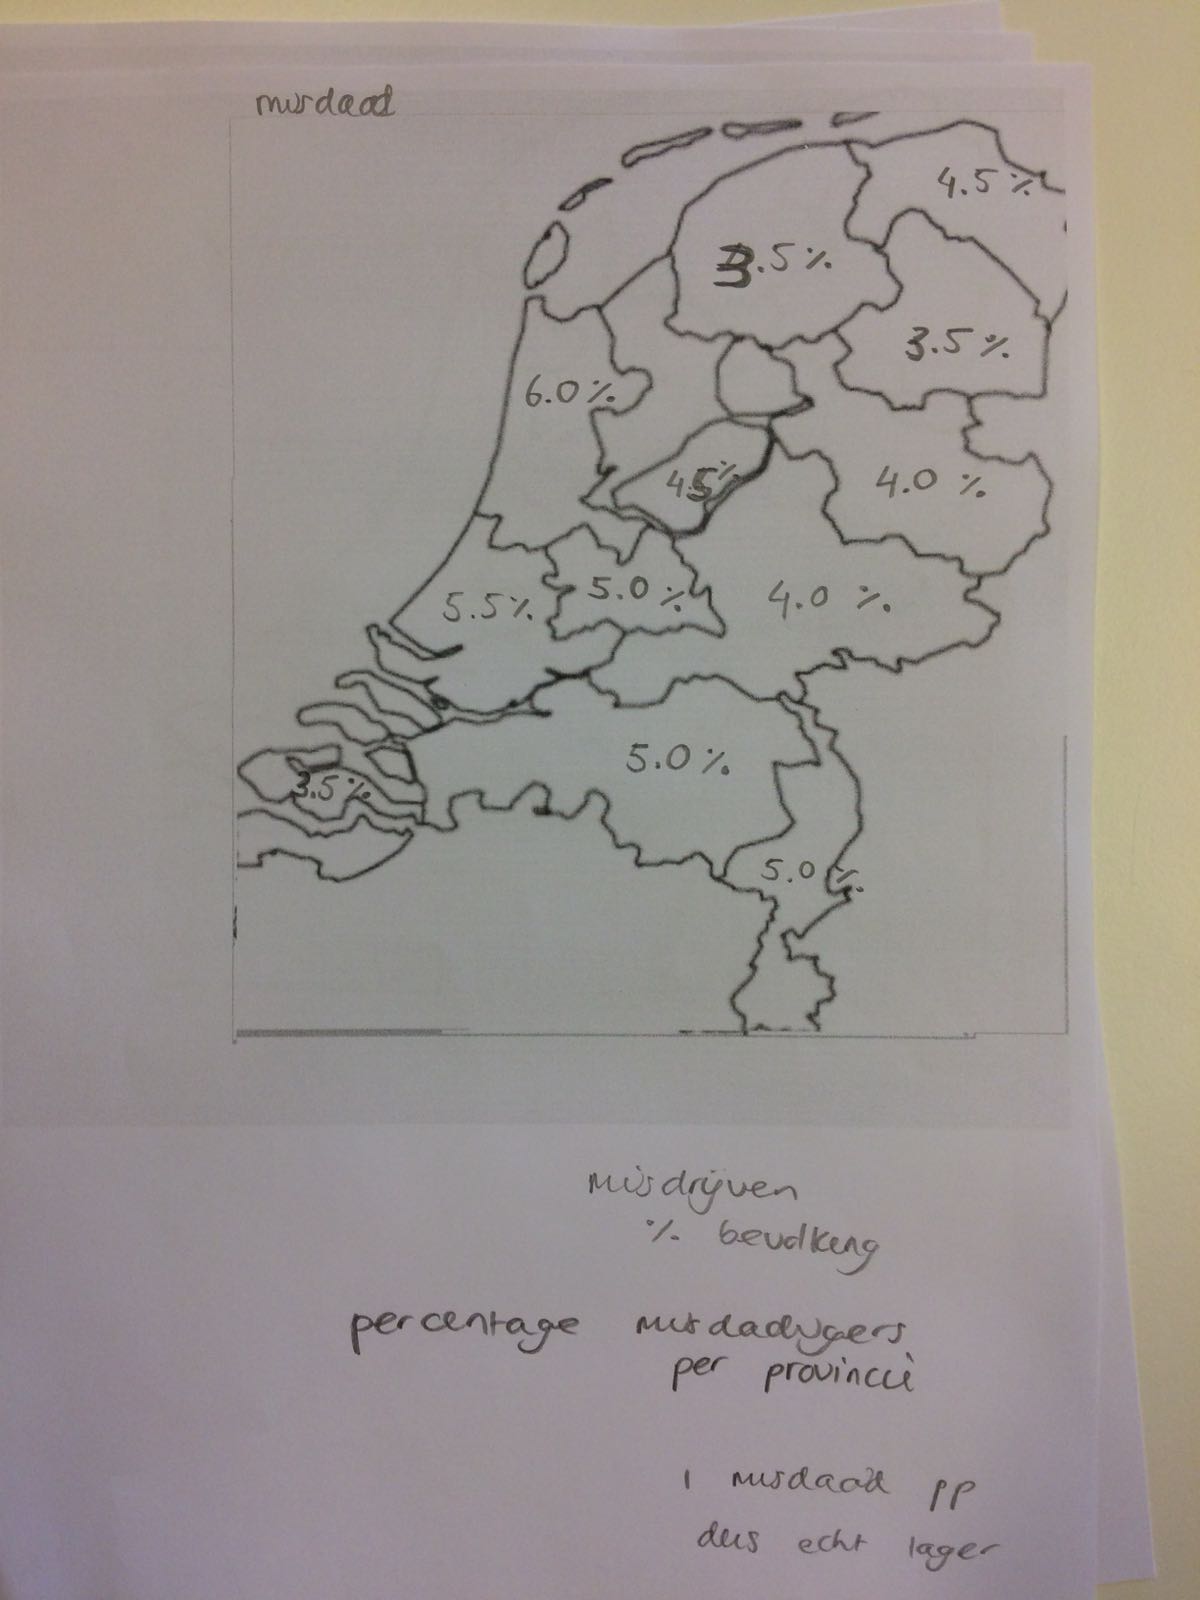 misdaad
4.5 %
3.5 %
3.5 %
6.0 %
4.5 %
4.0 %
5.5 %
5.0 %
4.0 %
5.0 %
3.5 %
5.0 %
misdrijven
% bevolking
percentage misdadigers
per provincie
1 misdaad pp
dus echt lager